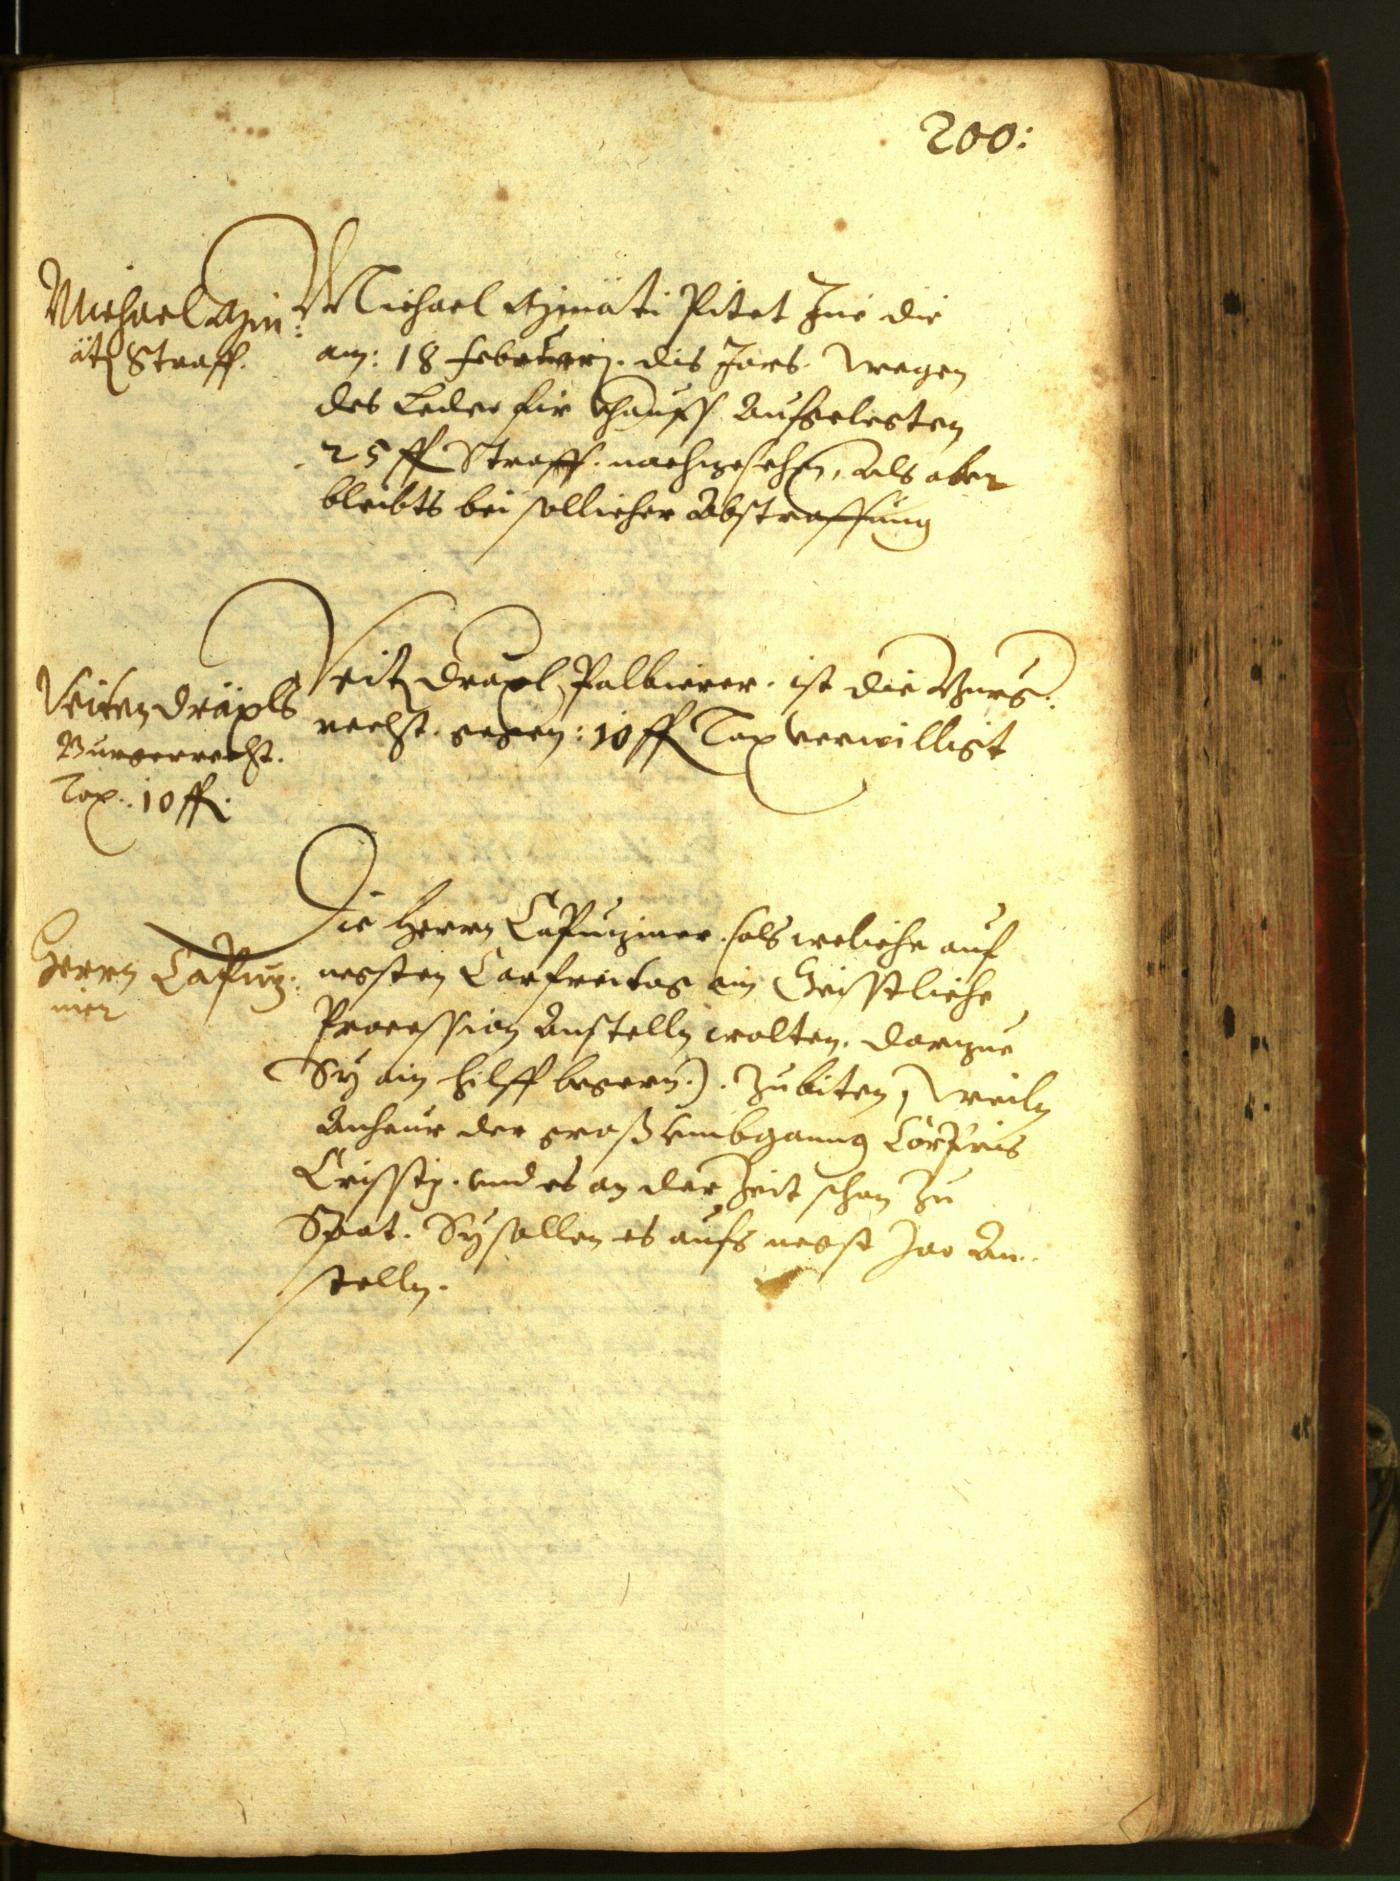 200:
Michael Azin:
äti Straff.
Michael Azinäti Pitet Ime die
am: 18 februarj. dis Jars. wegen
des Leder fir khauff Aufgelegten
25 fl Straff. nachzesehen, als aber
bleibts bei sollicher Abstraffung
Veiten Dräxls
Burgerrecht.
Tax. 10 fl.
Veit Dräxl Palbierer. ist die Burg:
recht. gegen: 10 fl Tax verwilligt
Herrn Capuz:
iner
Die Herrn Capuziner (als weliche auf
negsten Carfreitag ain Geistliche
Procession Anstelln wolten. darzue
Sy ain hilff begern.). Zubiten, weiln
Anheur der groß umbganng Corporis
Cristj. und es an der Zeit schon zu
Spat. Sy sollen es aufs negst Jar An:
stelln.